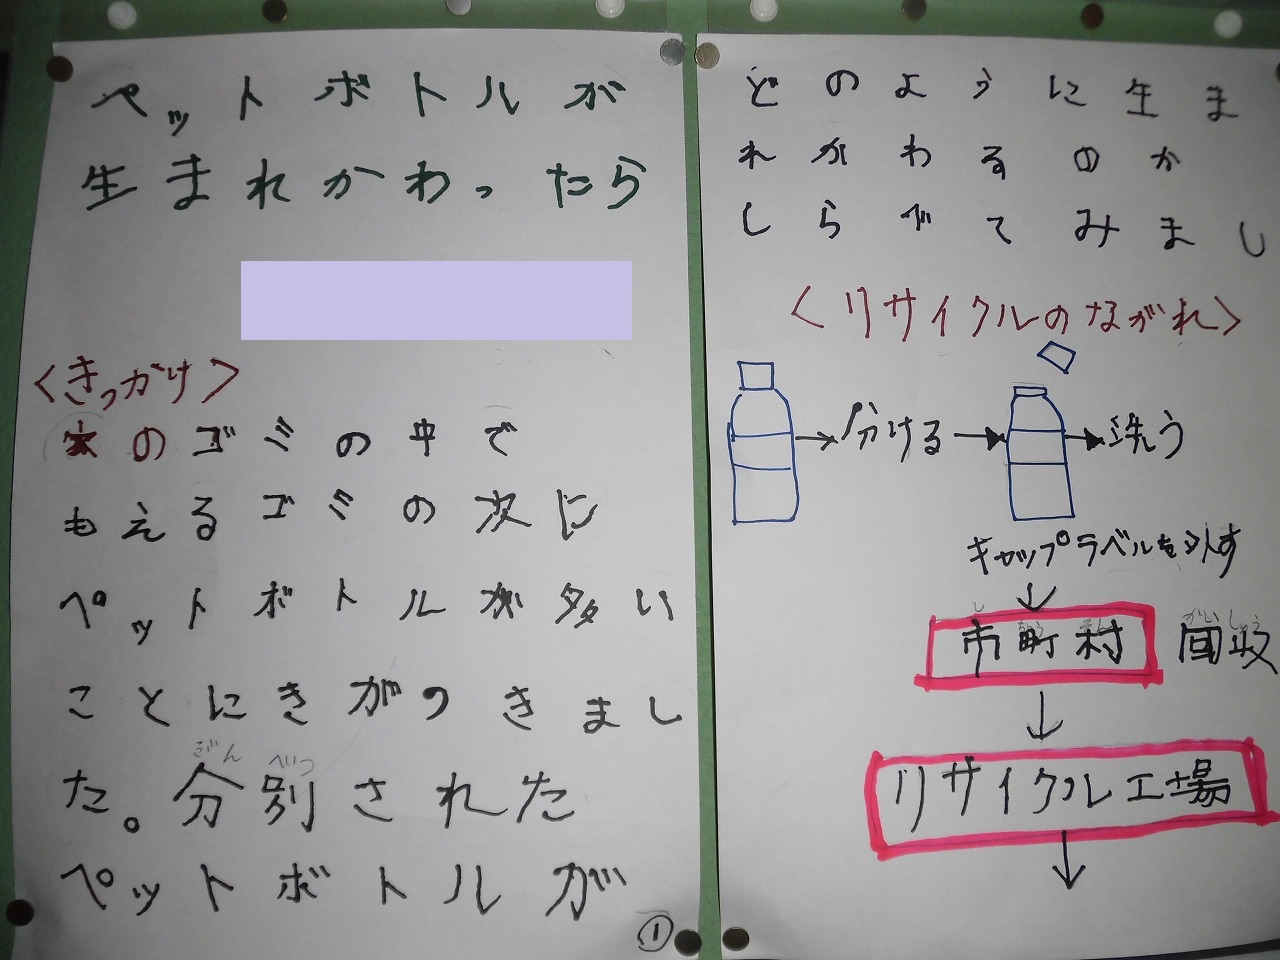 ペットボトルが
生まれかわったら
<きっかけ>
家のゴミの中で
もえるゴミの次に
ペットボトルが多い
ことにきがつきまし
た。分別された
ぶん べつ
ペットボトルが
①
どのように生ま
れかわるのか
しらべてみまし
<リサイクルのながれ>
分ける
洗う
キャップラベルを外す
市町村 回収
し ちょう そん かいしゅう
リサイクル工場